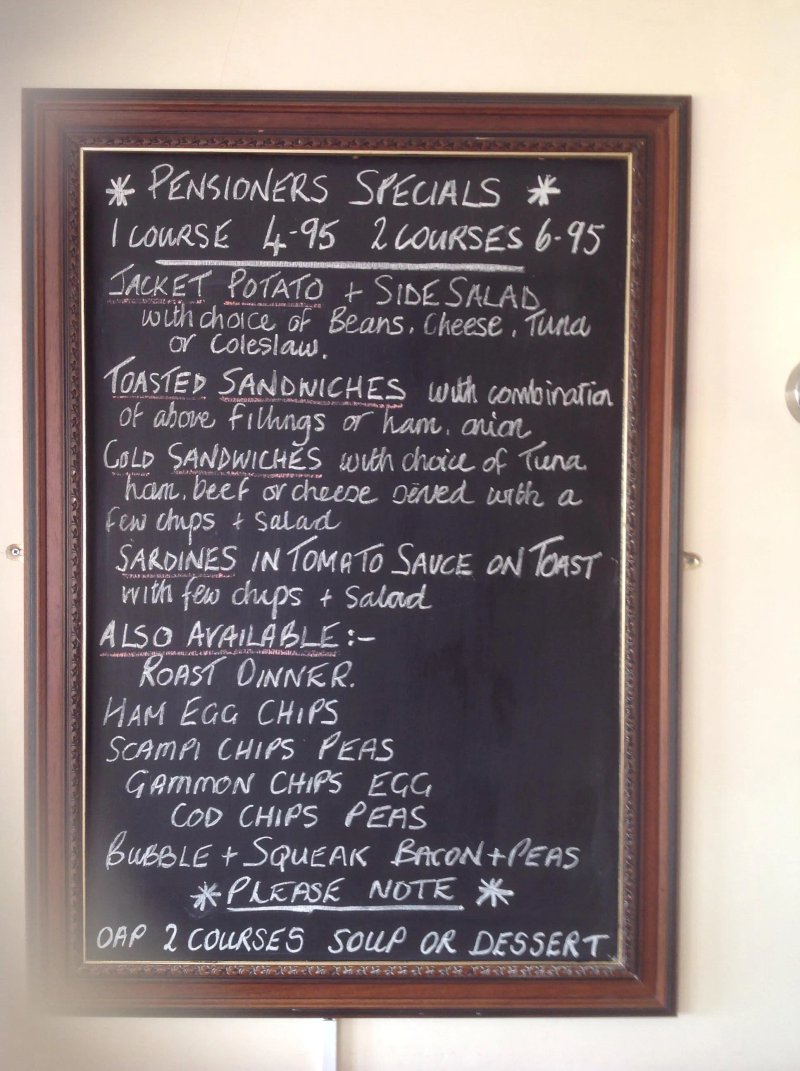 * PENSIONERS SPECIALS *
1 COURSE 4-95 2 COURSES 6-95
JACKET POTATO + SIDE SALAD
with choice of Beans, Cheese, Tuna
or Coleslaw.
TOASTED SANDWICHES with combination
of above fillings or ham, onion
COLD SANDWICHES with choice of Tuna
ham, beef or cheese served with a
few chips + salad
SARDINES IN TOMATO SAUCE ON TOAST
with few chips + salad
ALSO AVAILABLE:-
ROAST DINNER.
HAM EGG CHIPS
SCAMPI CHIPS PEAS
GAMMON CHIPS EGG
COD CHIPS PEAS
BUBBLE + SQUEAK BACON + PEAS
* PLEASE NOTE *
OAP 2 COURSES SOUP OR DESSERT